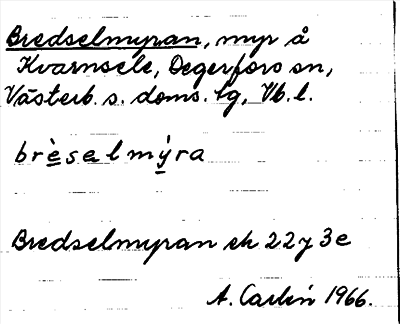 Bredselmyran, myr å
Kvarnsele, Degerfors sn,
Västerb. s. doms. tg, Vb. l.
brèselmýra
Bredselmyran ek 22y 3e
A. Carlén 1966.